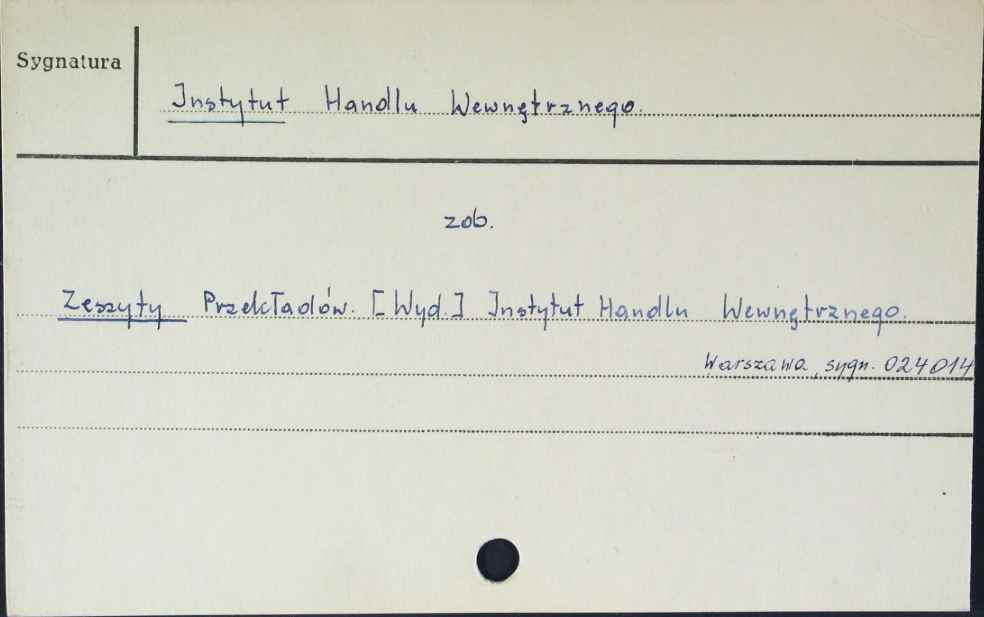 Sygnatura
Instytut Handlu Wewnętrznego.
zob.
Zeszyty Przekładów. [Wyd.] Instytut Handlu Wewnętrznego.
Warszawa, sygn. 024014